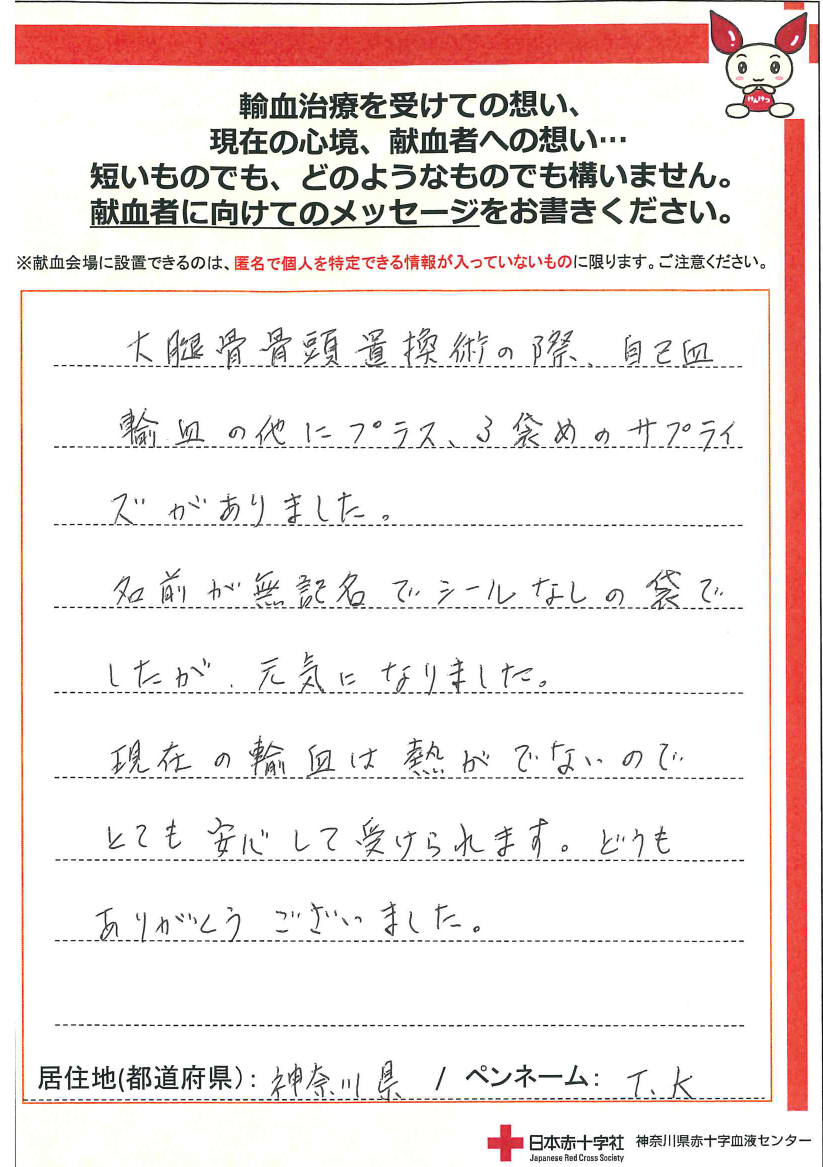 けんけつ
輸血治療を受けての想い、
現在の心境、献血者への想い…
短いものでも、どのようなものでも構いません。
献血者に向けてのメッセージをお書きください。
※献血会場に設置できるのは、匿名で個人を特定できる情報が入っていないものに限ります。ご注意ください。
大腿骨骨頭置換術の際、自己血
輸血の他にプラス、3袋めのサプライ
ズがありました。
名前が無記名でシールなしの袋で
したが、元気になりました。
現在の輸血は熱がでないので
とても安心して受けられます。どうも
ありがとうございました。
居住地(都道府県): 神奈川県 / ペンネーム: T.K
日本赤十字社 神奈川県赤十字血液センター
Japanese Red Cross Society